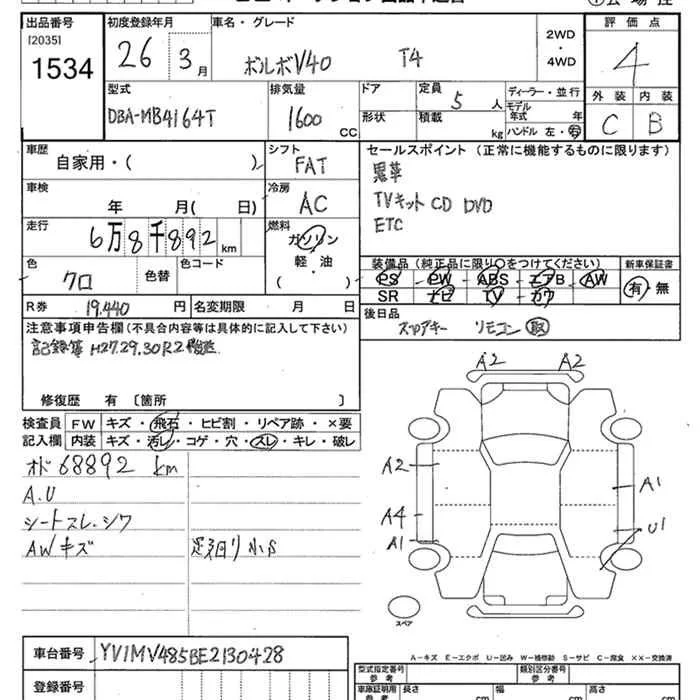 出品番号 初度登録年月 車名・グレード 評価点
[2035]
1534 26 3月 ボルボV40 T4 2WD・4WD 4
型式 排気量 ドア 定員 5人 ディーラー・並行 外装 内装
モデル年式 年
DBA-MB4164T 1600 CC 形状 積載 kg ハンドル 左・右 C B
車歴 シフト セールスポイント(正常に機能するものに限ります)
自家用・( ) FAT 黒革
車検 冷房 TVキット CD DVD
年 月( 日) AC ETC
走行 燃料
6万8千892km ガソリン
軽・油
( )
色 色替 色コード 装備品(純正品に限り○をつけてください) 新車保証書
クロ PS PW ABS エアB AW 有・無
SR ナビ TV カワ
R券 19,440円 名変期限 月 日 後日品
スペアキー リモコン 取
注意事項申告欄(不具合内容等は具体的に記入して下さい)
記録簿 H27.29.30R2
修復歴 有〔箇所 〕
検査員 FW キズ・飛石・ヒビ割・リペア跡・×要
記入欄 内装 キズ・汚レ・コゲ・穴・スレ・キレ・破レ
オド 68892 km
A.U
シートスレ.シワ
AWキズ 足回り小S
A2 A2
A2 A1
A4 U1
A1
スペア
A-キズ E-エクボ U-凹み W-補修跡 S-サビ C-腐食 ××-交換済
車台番号 YV1MV485BE2130428
登録番号
型式指定番号 参考 類別区分番号 参考
車庫証明用 参考 長さ cm 幅 cm 高さ cm